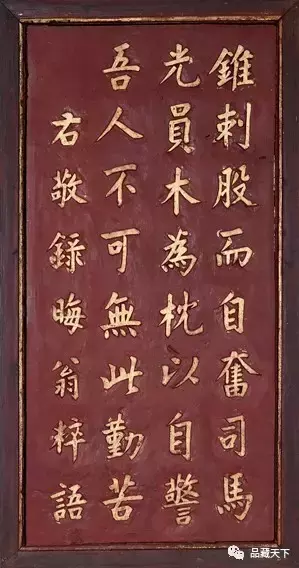 錐刺股而自奮司馬
光員木為枕以自警
吾人不可無此勤苦
右敬録晦翁粹語
品藏天下